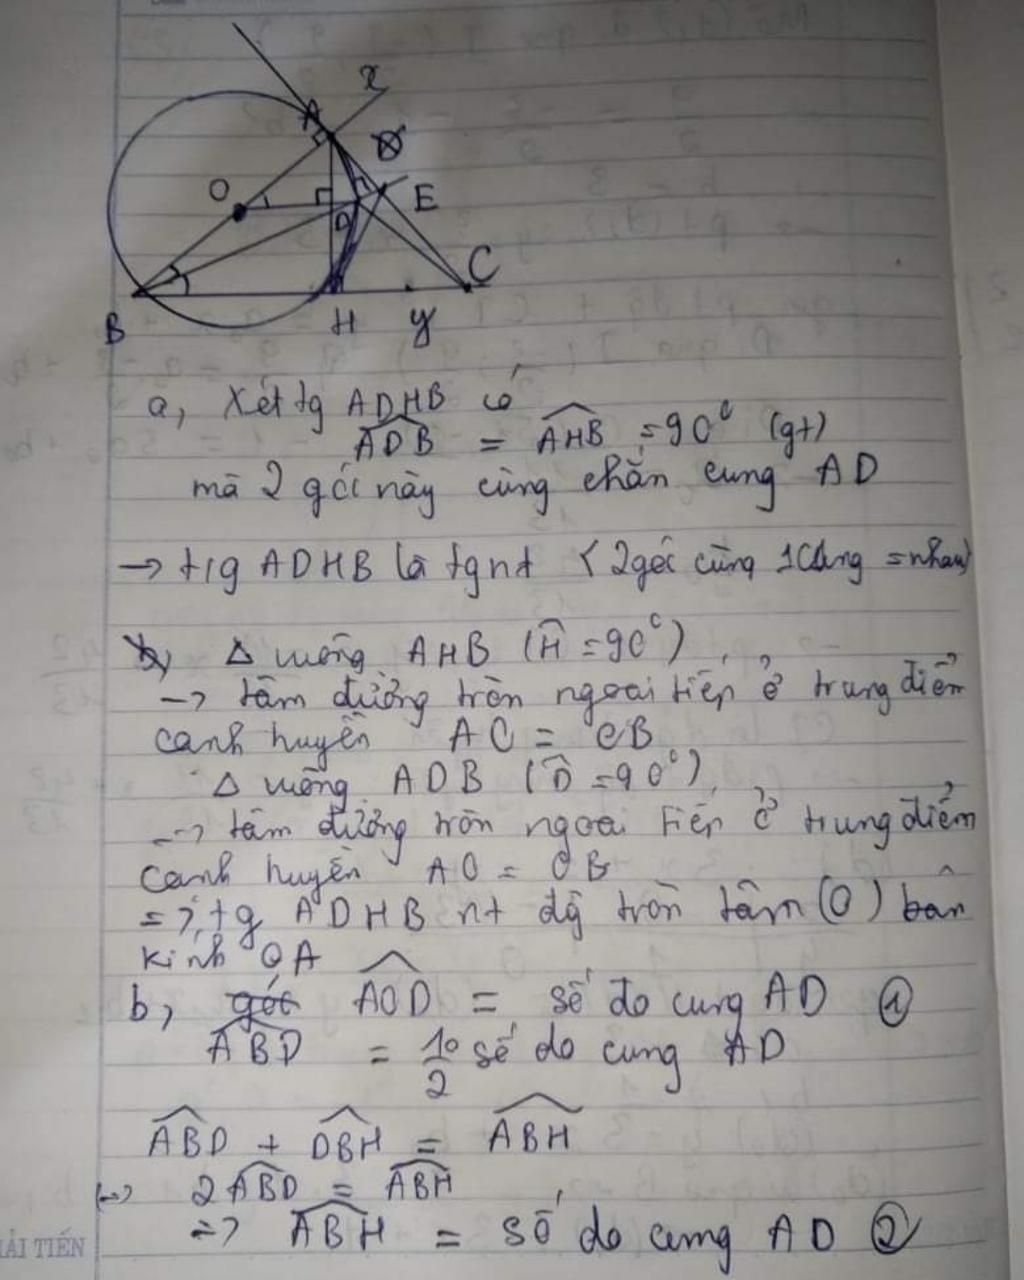 x
A
O
E
D
C
B
H
y
a, Xét tg ADHB có
ADB = AHB = 90° (gt)
mà 2 góc này cùng chắn cung AD
→ tig ADHB là tgnt (2 góc cùng 1 cung = nhau)
b) Δ vuông AHB (H = 90°)
→ tâm đường tròn ngoại tiếp ở trung điểm
cạnh huyền AO = OB
Δ vuông ADB (D = 90°)
→ tâm đường tròn ngoại tiếp ở trung điểm
cạnh huyền AO = OB
=> tg ADHB nt đg tròn tâm (O) bán
kính OA
b, góc AOD = số đo cung AD ①
ABD = 1/2 số đo cung AD
ABD + DBH = ABH
(→) 2ABD = ABH
=> ABH = số đo cung AD ②
ẢI TIẾN